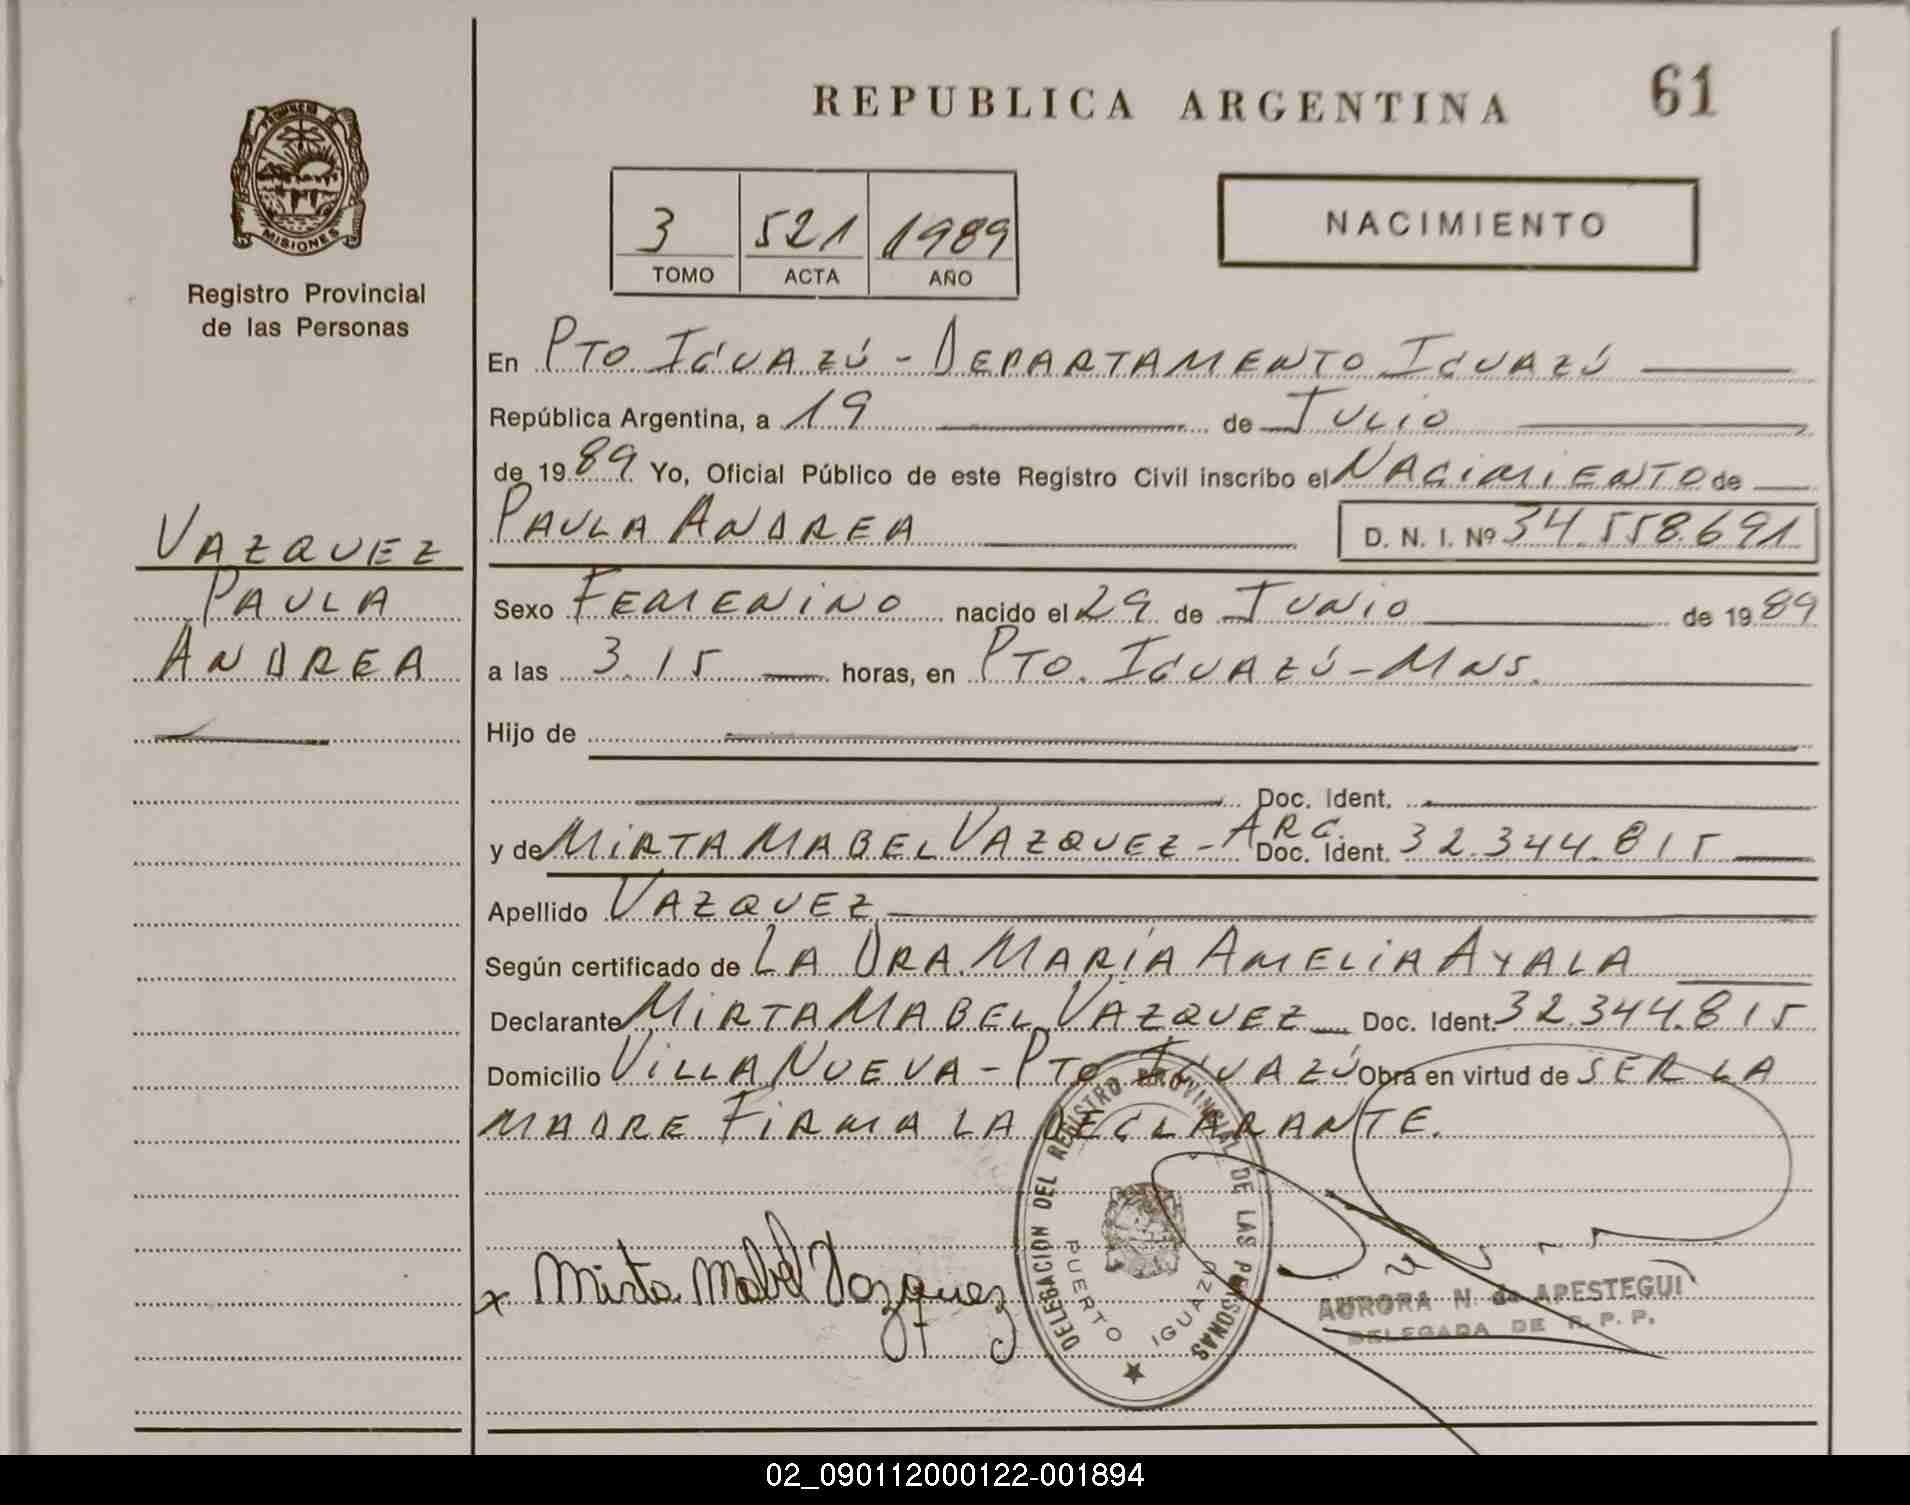 REPUBLICA ARGENTINA
61
PROVINCIA DE
MISIONES
Registro Provincial
de las Personas
3 521 1989
TOMO ACTA AÑO
NACIMIENTO
En PTO IGUAZÚ - DEPARTAMENTO IGUAZÚ
República Argentina, a 19 de JULIO
de 1989 Yo, Oficial Público de este Registro Civil inscribo el NACIMIENTO de
PAULA ANDREA D. N. I. Nº 34.558.691
VAZQUEZ
PAULA
ANDREA
Sexo FEMENINO nacido el 29 de JUNIO de 1989
a las 3.15 horas, en PTO. IGUAZÚ - MNS.
Hijo de
Doc. Ident.
y de MIRTA MABEL VAZQUEZ - ARG. Doc. Ident. 32.344.815
Apellido VAZQUEZ
Según certificado de LA DRA. MARÍA AMELIA AYALA
Declarante MIRTA MABEL VAZQUEZ Doc. Ident. 32.344.815
Domicilio VILLA NUEVA - PTO IGUAZÚ Obra en virtud de SER LA
MADRE FIRMA LA DECLARANTE.
DELEGACION DEL REGISTRO PROVINCIAL DE LAS PERSONAS
PUERTO IGUAZU
x Mirta Mabel Vazquez
AURORA N. de APESTEGUI
DELEGADA DE R. P. P.
02_090112000122-001894